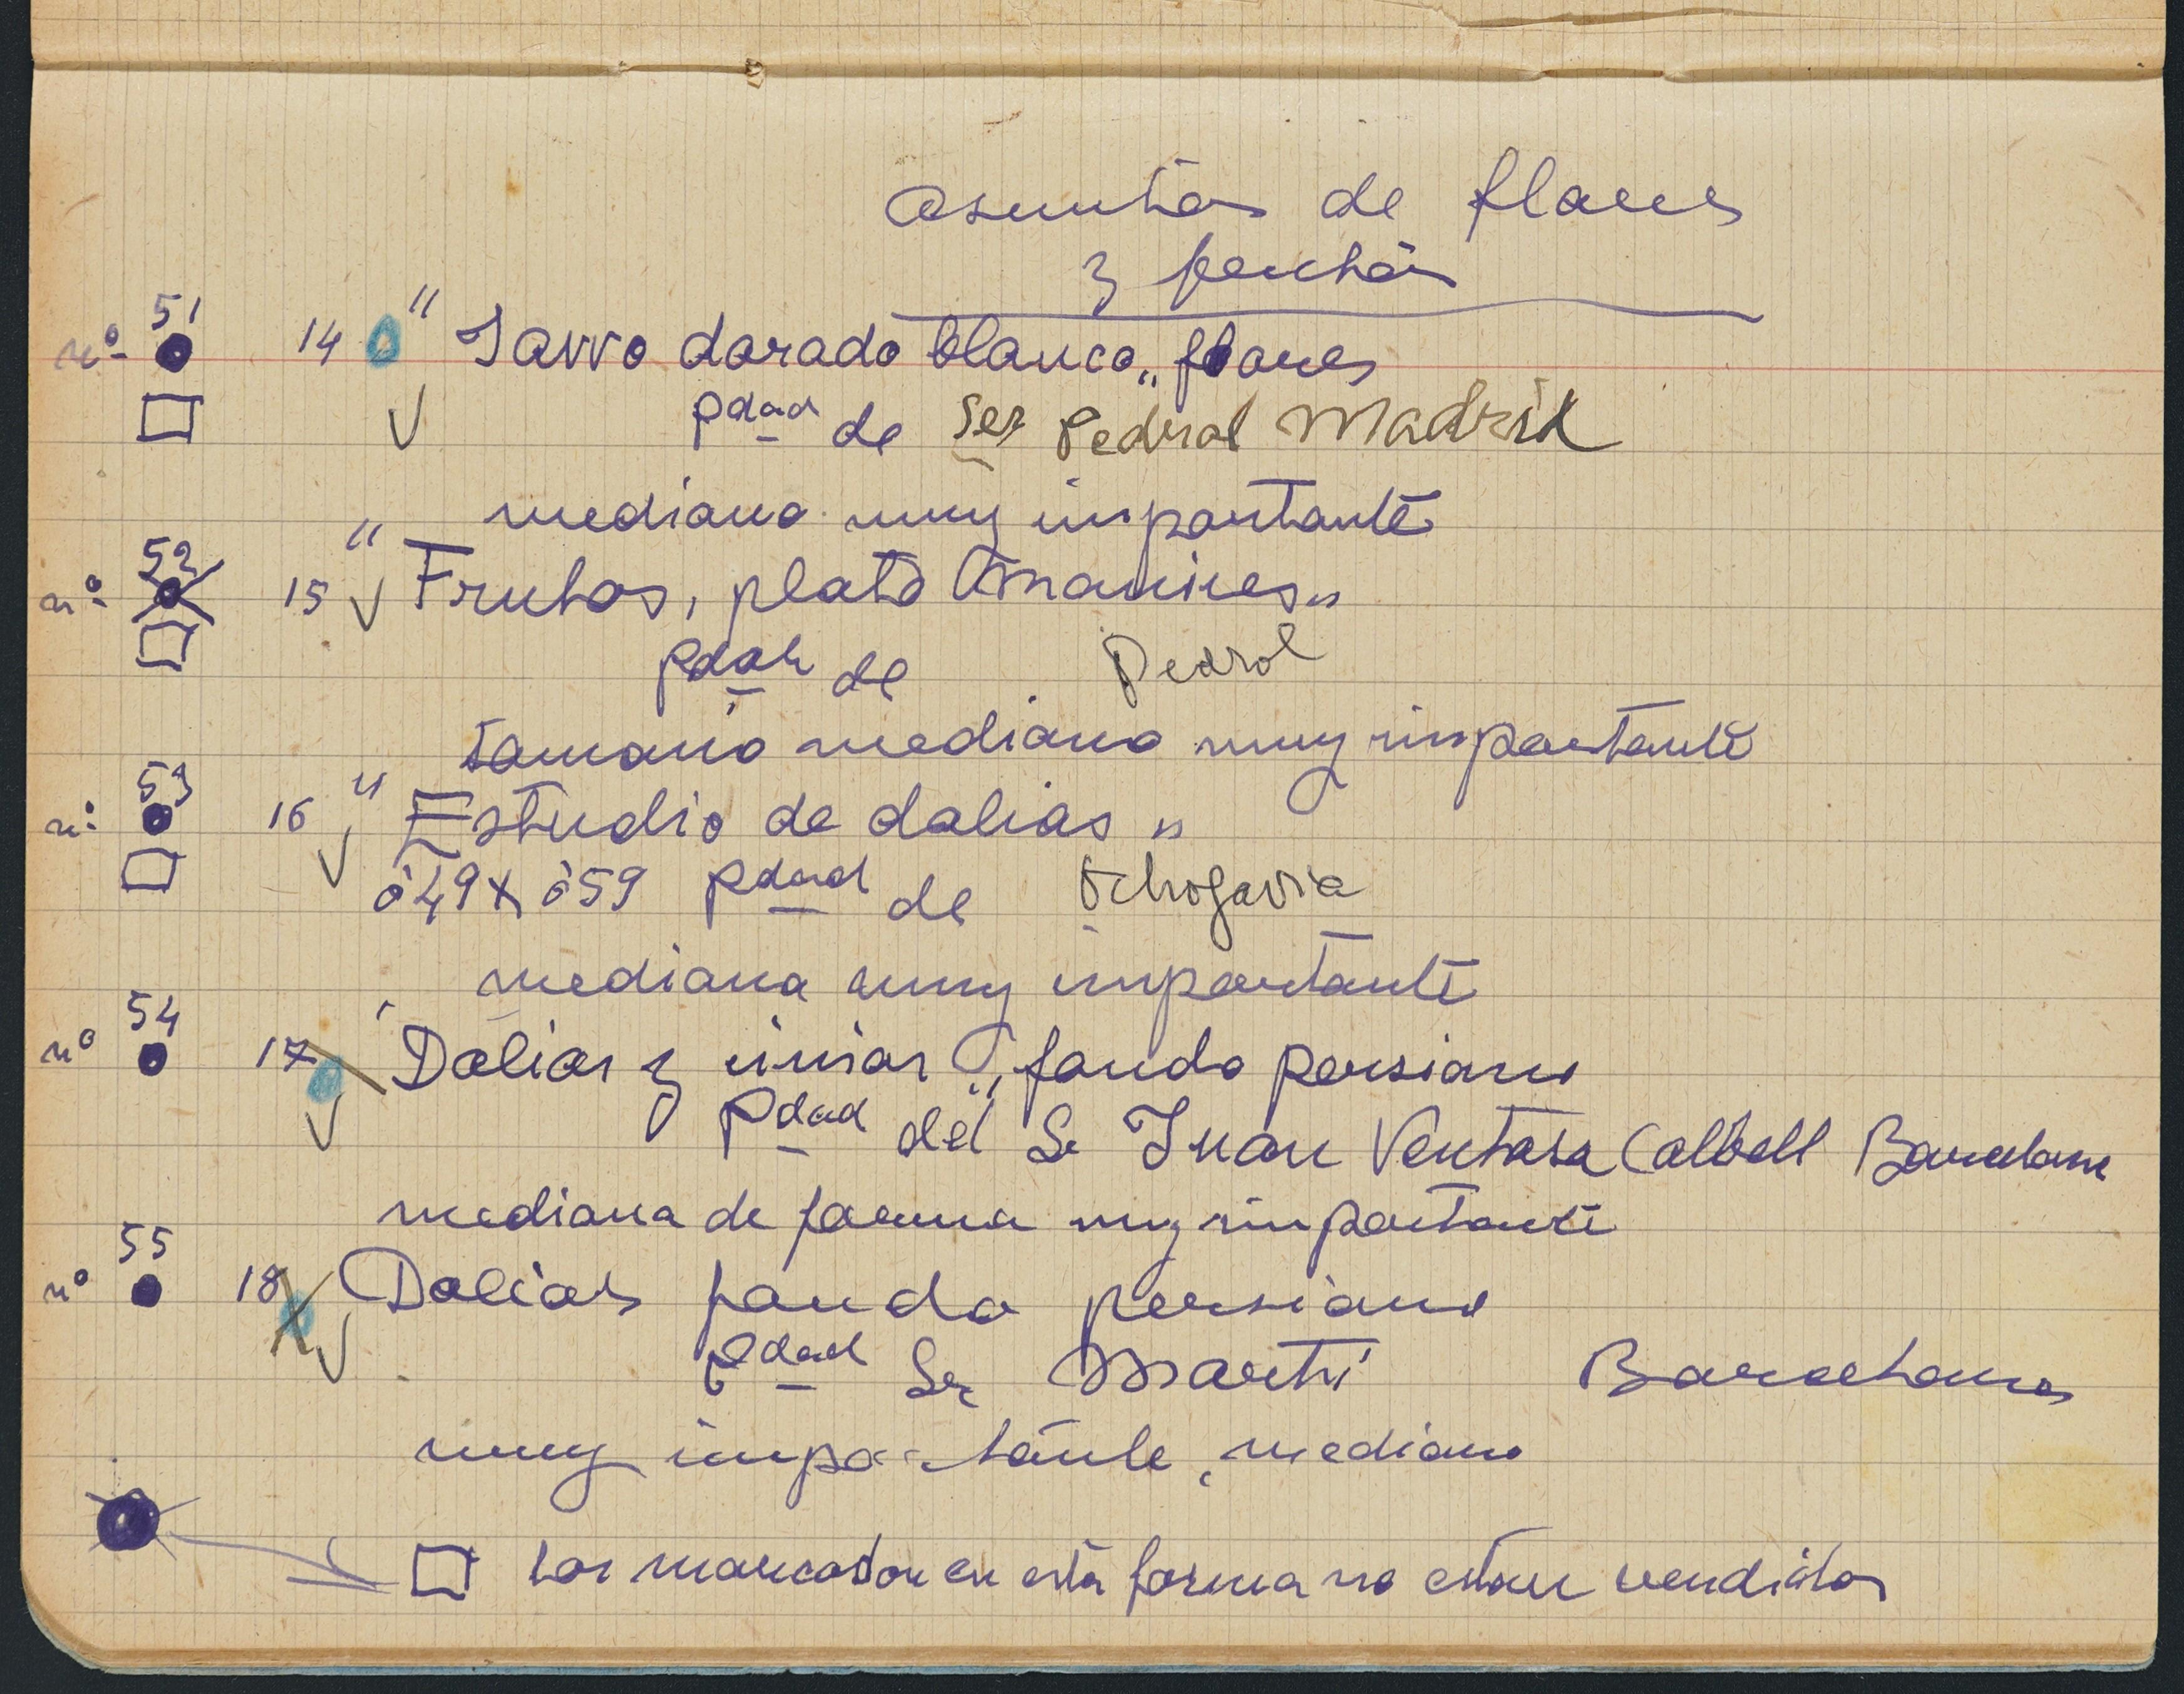 asuntos de flores
y frutos
nº 51 14 " Jarro dorado blanco „ flores
pdad de Sr Pedrol Madrid
mediano muy importante
nº 52 15 " Frutas, plato Manises „
pdad de Pedrol
tamaño mediano muy importante
nº 53 16 " Estudio de dalias „
0'49 x 0'59 pdad de Ochogavia
mediana muy importante
nº 54 17 Dalias y zinias „ fondo persiano
pdad del Sr Juan Ventosa Calbell Barcelona
mediana de forma muy importante
nº 55 18 Dalias fondo persiano
pdad Sr Martí Barcelona
muy importante, mediano
los marcados en esta forma no estan vendidos